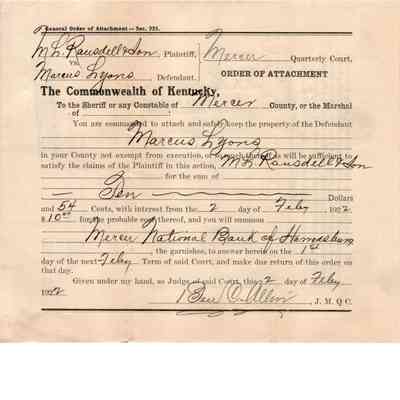 General Order of Attachment—Sec. 221.
M L Ransdell & Son, Plaintiff,
Vs.
Marcus Lyons Defendant.
Mercer Quarterly Court,
ORDER OF ATTACHMENT
The Commonwealth of Kentucky,
To the Sheriff or any Constable of Mercer County, or the Marshal
of
You are commanded to attach and safely keep the property of the Defendant
Marcus Lyons
in your County not exempt from execution, or so much thereof as will be sufficient to
satisfy the claims of the Plaintiff in this action, M L Ransdell & Son
for the sum of
Ten Dollars
and 54 Costs, with interest from the 2 day of Feby 1922
$10.00 for the probable cost thereof, and you will summon
Mercer National Bank of Harrodsburg
, the garnishee, to answer herein on the 1st
day of the next Feby Term of said Court, and make due return of this order on
that day.
Given under my hand, as Judge of said Court, this 2 day of Feby
1922
Ben C. Allin, J. M. Q. C.